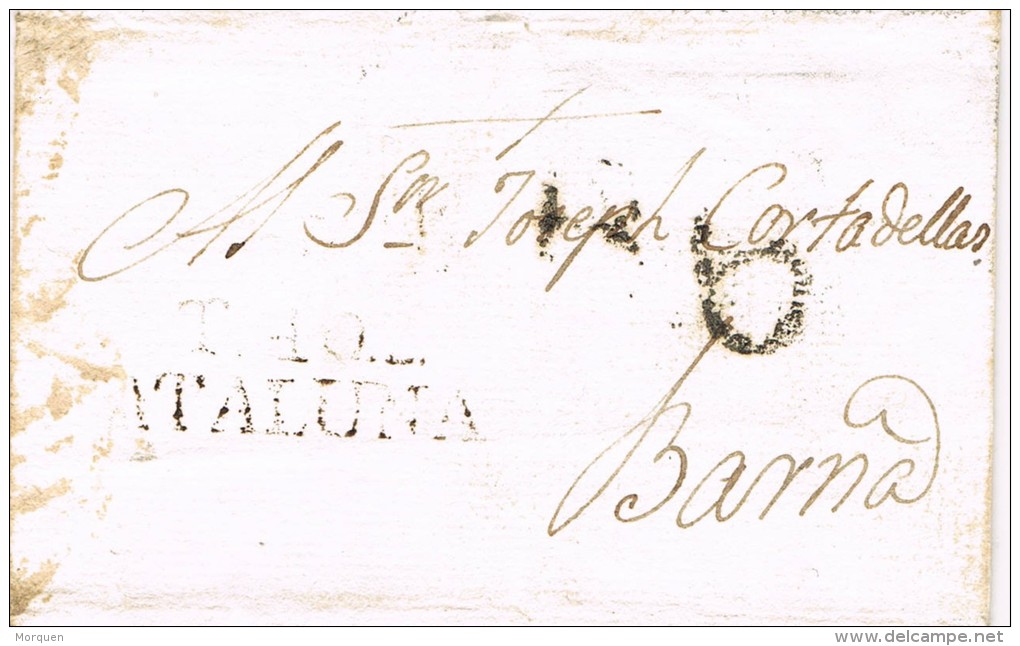 Al Sr. Joseph Cortadellas,
6
T. 10.
ATALUÑA
Barna
Morquen
delcampe.net